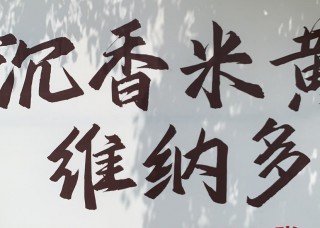 沉香米黄
维纳多